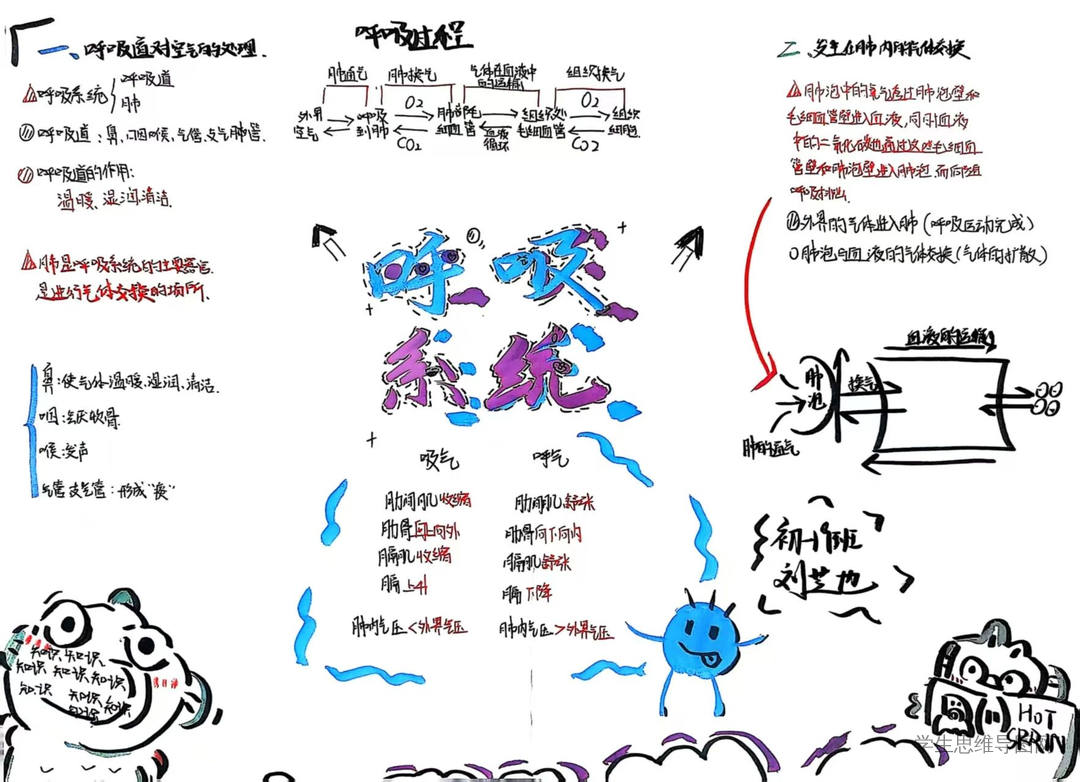 一、呼吸道对空气的处理.
呼吸系统
呼吸道
肺
呼吸道:鼻,口咽喉,气管,支气肺管.
呼吸道的作用:
温暖、湿润清洁.
肺是呼吸系统的主要器官
是进行气体交换的场所.
鼻:使气体温暖,湿润、清洁.
咽:
喉:发声
气管支气管:形成"痰"
呼吸过程
肺通气
肺换气
气体在血液中
的运输
组织换气
外界
空气
呼吸
到肺
O2
CO2
肺部毛
细血管
血液
循环
组织处
毛细血管
O2
CO2
组织
细胞
呼吸
系统
吸气
肋间肌收缩
肋骨向上向外
膈肌收缩
膈上升
肺内气压<外界气压
呼气
肋间肌舒张
肋骨向下向内
膈肌舒张
膈下降
肺内气压>外界气压
二、发生在肺内的气体交换
肺泡中的氧气透过肺泡壁和
毛细血管壁进入血液,同时血液
中的二氧化碳也透过这些毛细血
管壁和肺泡壁进入肺泡.而后随
呼吸排出.
外界的气体进入肺(呼吸运动完成)
肺泡与血液的气体交换(气体的扩散)
血液的运输
肺
泡
换气
肺的通气
初一1班
知识 知识
知识 知识 知识
知识 知识 知识
HOT
学生思维导图